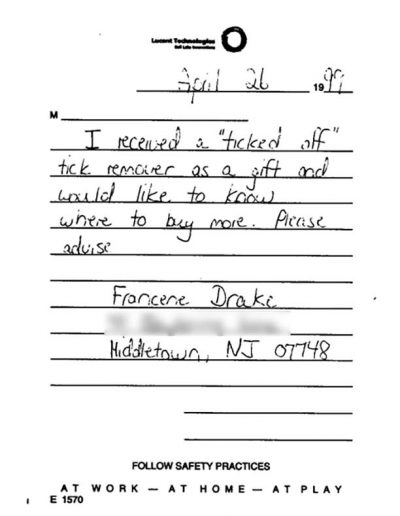 Lucent Technologies
Bell Labs Innovations
April 26 1999
M
I received a "ticked off"
tick remover as a gift and
would like to know
where to buy more. Please
advise
Francene Drake
Middletown, NJ 07748
FOLLOW SAFETY PRACTICES
AT WORK — AT HOME — AT PLAY
E 1570